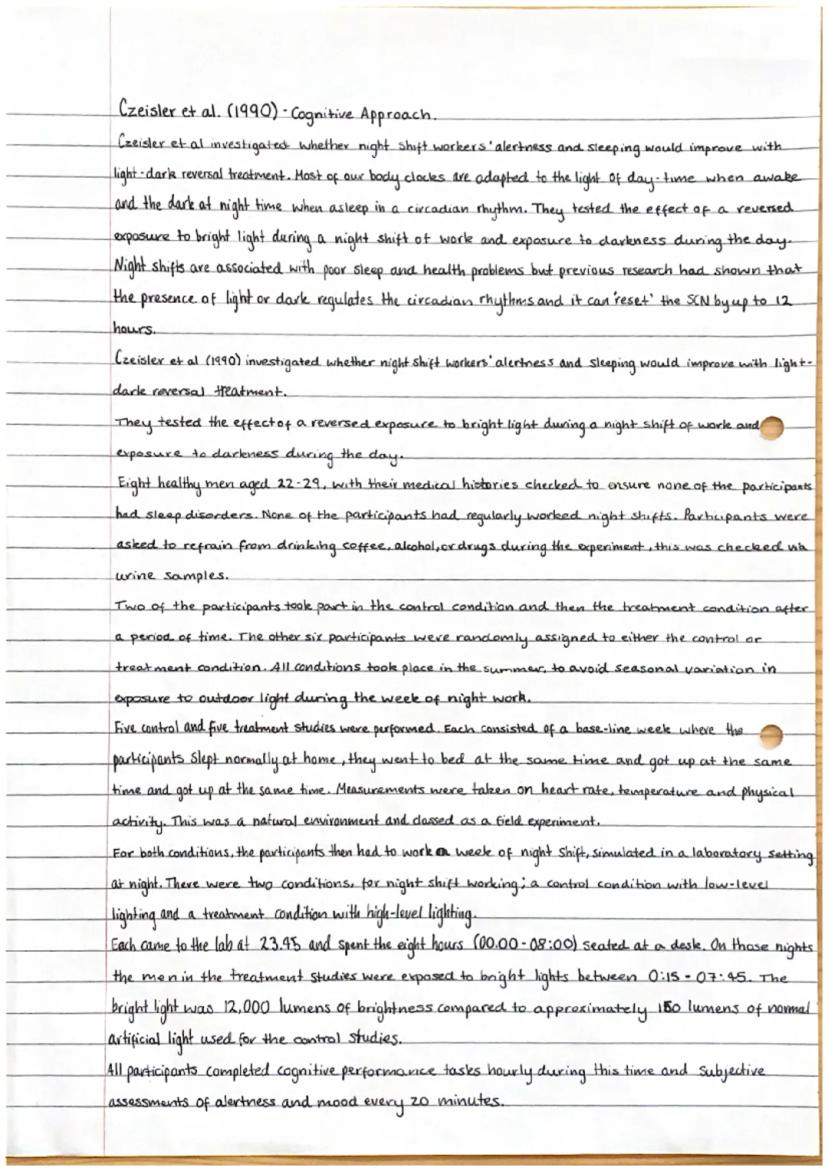 Czeisler et al. (1990) - Cognitive Approach.
Czeisler et al investigated whether night shift workers' alertness and sleeping would improve with
light-dark reversal treatment. Most of our body clocks are adapted to the light of day-time when awake
and the dark at night time when asleep in a circadian rhythm. They tested the effect of a reversed
exposure to bright light during a night shift of work and exposure to darkness during the day.
Night shifts are associated with poor sleep and health problems but previous research had shown that
the presence of light or dark regulates the circadian rhythms and it can 'reset' the SCN by up to 12
hours.
Czeisler et al (1990) investigated whether night shift workers' alertness and sleeping would improve with light-
dark reversal treatment.
They tested the effect of a reversed exposure to bright light during a night shift of work and
exposure to darkness during the day.
Eight healthy men aged 22-29, with their medical histories checked to ensure none of the participants
had sleep disorders. None of the participants had regularly worked night shifts. Participants were
asked to refrain from drinking coffee, alcohol, or drugs during the experiment, this was checked via
urine samples.
Two of the participants took part in the control condition and then the treatment condition after
a period of time. The other six participants were randomly assigned to either the control or
treatment condition. All conditions took place in the summer, to avoid seasonal variation in
exposure to outdoor light during the week of night work.
Five control and five treatment studies were performed. Each consisted of a base-line week where the
participants slept normally at home, they went to bed at the same time and got up at the same
time and got up at the same time. Measurements were taken on heart rate, temperature and physical
activity. This was a natural environment and classed as a field experiment.
For both conditions, the participants then had to work a week of night shift, simulated in a laboratory setting
at night. There were two conditions, for night shift working; a control condition with low-level
lighting and a treatment condition with high-level lighting.
Each came to the lab at 23.45 and spent the eight hours (00.00 - 08:00) seated at a desk. On those nights
the men in the treatment studies were exposed to bright lights between 0:15 - 07:45. The
bright light was 12,000 lumens of brightness compared to approximately 150 lumens of normal
artificial light used for the control studies.
All participants completed cognitive performance tasks hourly during this time and subjective
assessments of alertness and mood every 20 minutes.